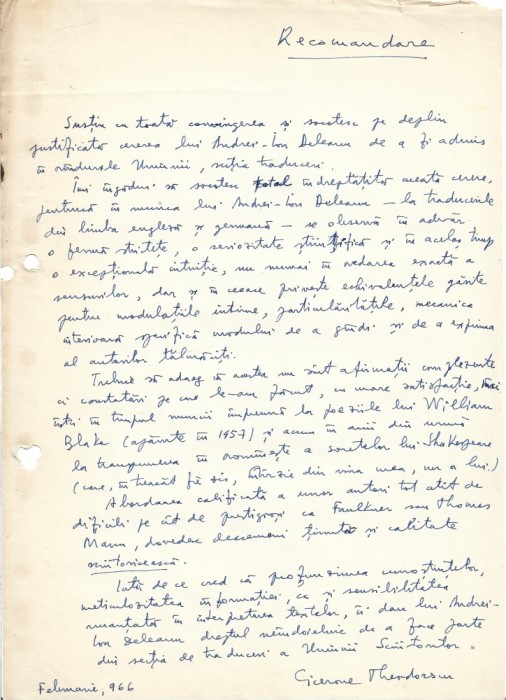 Recomandare
Susțin cu toată convingerea și socotesc pe deplin
justificată cererea lui Andrei-Ion Deleanu de a fi admis
în rândurile Uniunii, secția traduceri.
Îmi îngădui să socotesc total îndreptățită această cerere,
pentrucă în munca lui Andrei-Ion Deleanu – la traducerile
din limba engleză și germană – se observă în adevăr
o fermă strictețe, o seriozitate științifică și în același timp
o excepțională intuiție, nu numai în redarea exactă a
sensurilor, dar și în ceeace privește echivalențele găsite
pentru modulațiile intime, particularitățile, mecanica
interioară specifică modului de a gândi și de a exprima
al autorilor tălmăciți.
Trebuie să adaog că acestea nu sunt afirmații complezente
ci constatări pe care le-am făcut, cu mare satisfacție, mai
întâi în timpul muncii împreună la poeziile lui William
Blake (apărute în 1957) și acum în anii din urmă
la transpunerea în românește a sonetelor lui Shakespeare
(care, în treacăt fie zis, întârzie din vina mea, nu a lui.)
Abordarea calificată a unor autori tot atît de
dificili pe cât de prestigioși ca Faulkner sau Thomas
Mann, dovedesc deasemeni ținută și calitate
scriitoricească.
Iată de ce cred că profunzimea cunoștințelor,
meticulozitatea informației, ca și sensibilitatea
nuanțată în interpretarea textelor, îi dau lui Andrei-
Ion Deleanu dreptul neîndoielnic de a face parte
din secția de traduceri a Uniunii Scriitorilor.
Cicerone Theodorescu
Februarie, 966